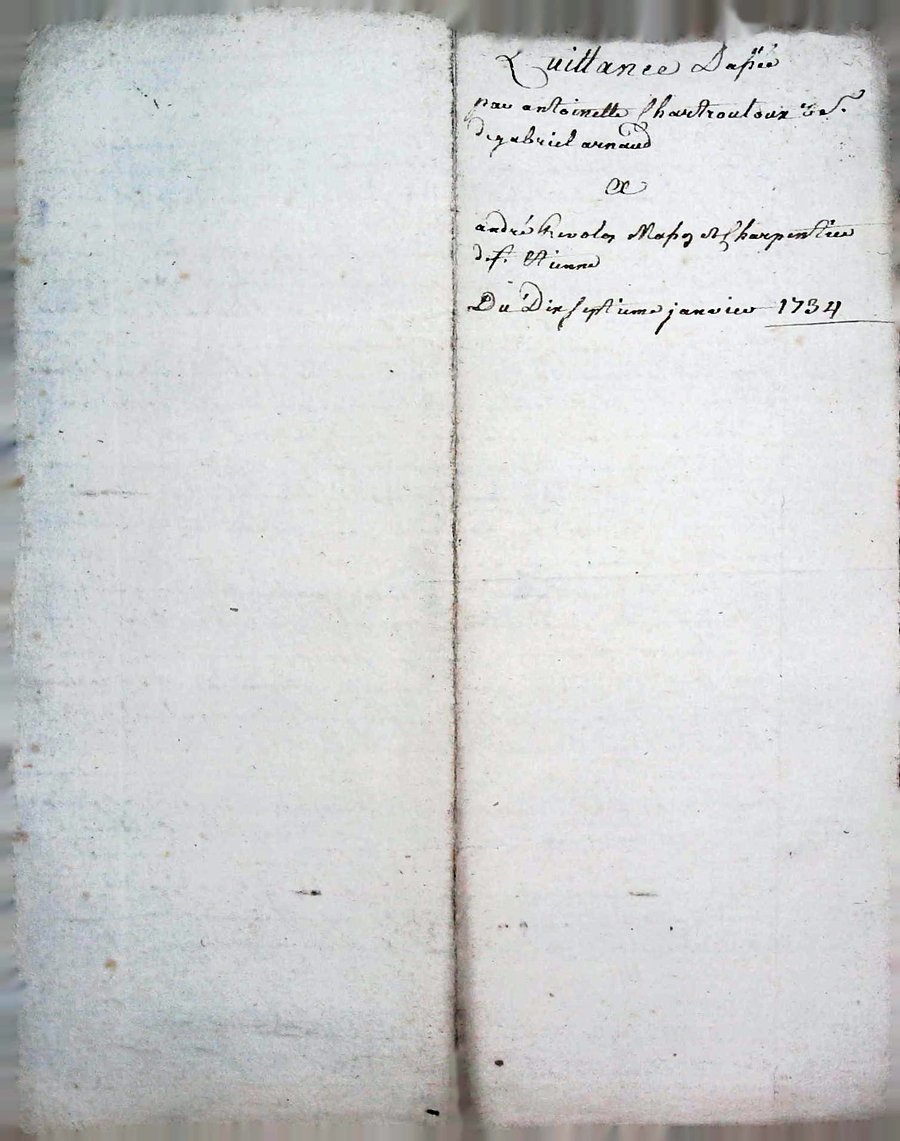 Quittance Dapié
par antoinette Chartrouloux ve
de gabriel arnaud
A
andré Masso et Charpentier
de St. Etienne
Du Dix septieme janvier 1734